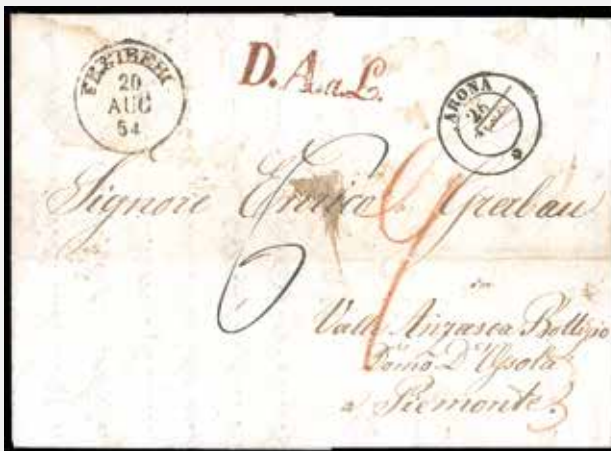 FREIBERG
20
AUG
54
D. A. a. L.
ARONA
26
Signore Enrico Grabau
in
Valle Anzasca
Domo D'Ossola
a Piemonte.